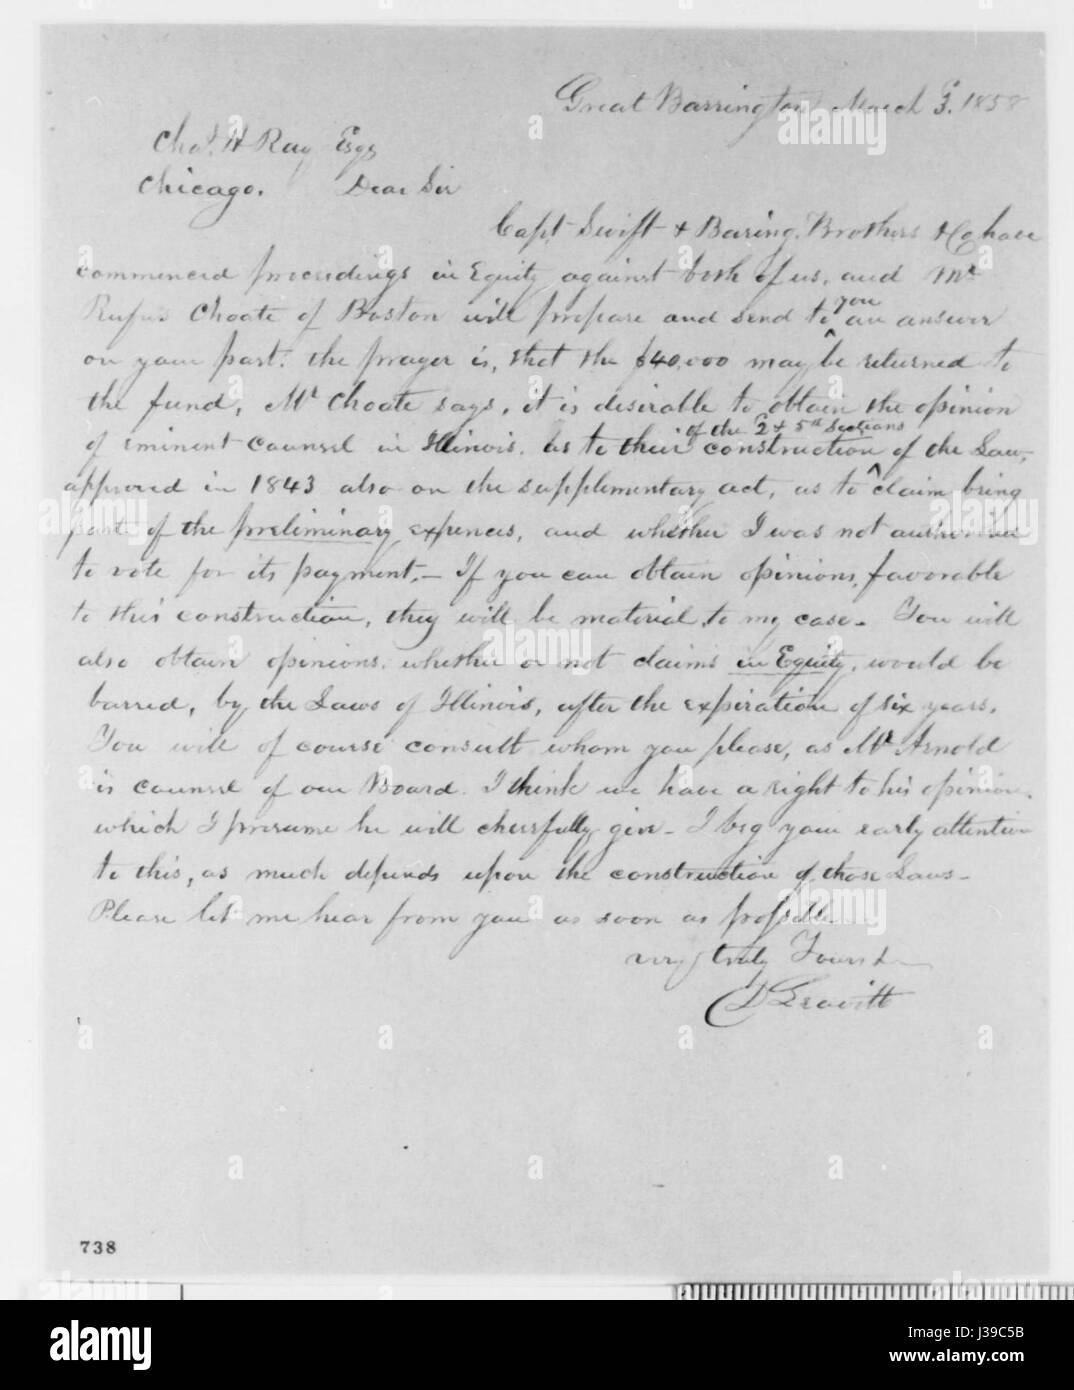 Great Barrington March 3. 1858
Chas. H Ray Esqr
Chicago. Dear Sir
Capt Swift & Baring Brothers & Co have
commenced proceedings in Equity against both of us, and Mr
Rufus Choate of Boston will prepare and send to you an answer
on your part. the prayer is, that the $40,000 may be returned to
the fund, Mr Choate says, it is desirable to obtain the opinion
of eminent counsel in Illinois. as to their construction of the 2 & 5th Sections of the Law,
approved in 1843 also on the supplementary act, as to claim being
part of the preliminary expences, and whether I was not authorised
to vote for its payment,— If you can obtain opinions, favorable
to this construction, they will be material, to my case— You will
also obtain opinions, whether or not claims in Equity, would be
barred, by the Laws of Illinois, after the expiration of six years.
You will of course consult whom you please, as Mr Arnold
is counsel of our Board. I think we have a right to his opinion,
which I presume he will cheerfully give— I beg your early attention
to this, as much depends upon the construction of those Laws—
Please let me hear from you as soon as possible
very truly Yours
D Leavitt
738
alamy
a
alamy
Image ID: J39C5B
www.alamy.com